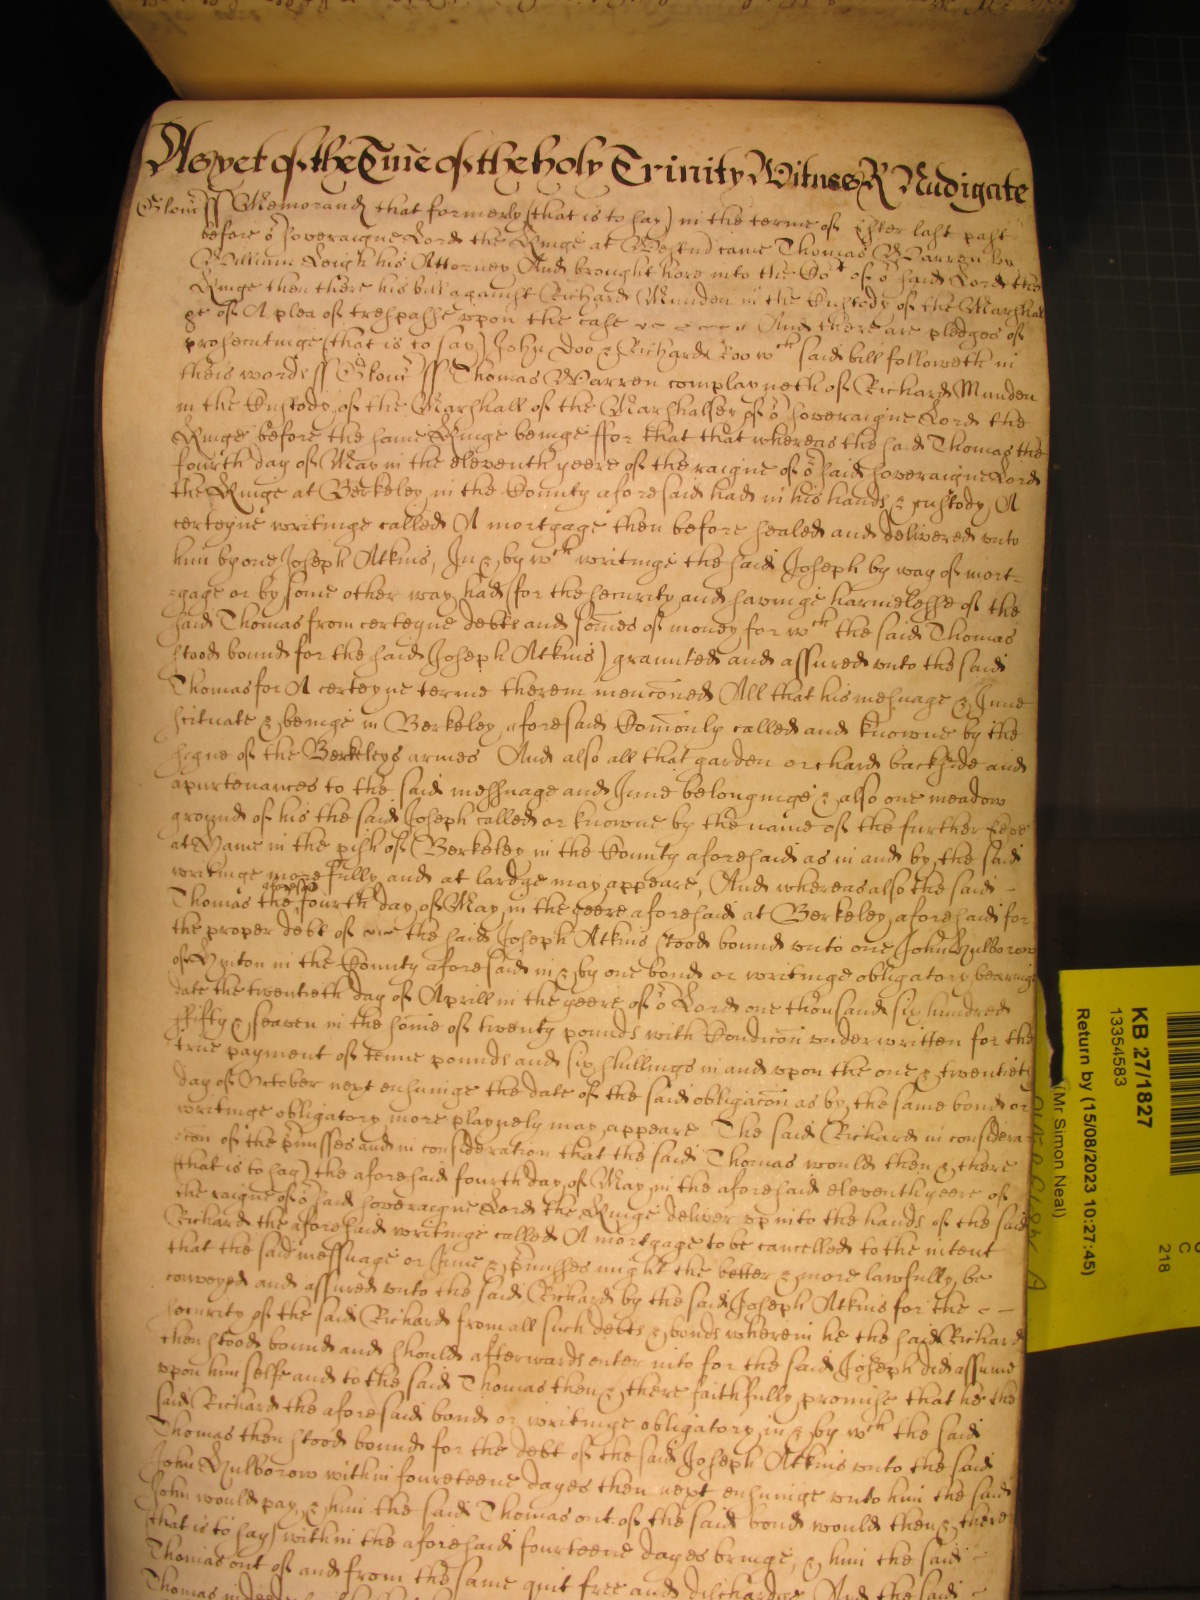 As yet of the Tm̃e of the holy Trinity Witness R Nudigate
Glouc̃ ss Memorand that formerly (that is to say) in the terme of Ester last past
before oʳ soveraigne Lord the Kinge at Westm̃ came Thomas Warren by
William Leigh his Attorney And brought here into the Coᵗ of oʳ said Lord the
Kinge then there his bill against Richard Munden in the Custody of the Marshall
&c of A plea of trespasse upon the case And there are pledges of
prosecutinge (that is to say) John Doo & Richard Roo wᶜʰ said bill followeth in
theis words ss Glouc̃ ss Thomas Warren complayneth of Richard Munden
in the Custody of the Marshall of the Marshalsey of oʳ soveraigne Lord the
Kinge before the same Kinge beinge ffor that that whereas the said Thomas the
fourth day of May in the eleventh yeere of the raigne of oʳ said soveraigne Lord
the Kinge at Berkeley in the County aforesaid had in his hands & custody A
certeyne writinge called A mortgage then before sealed and delivered unto
him by one Joseph Atkins, In & by wᶜʰ writinge the said Joseph by way of mort-
-gage or by some other way had (for the security and savinge harmelesse of the
said Thomas from certeyne debts and som̃es of money for wᶜʰ the said Thomas
stood bound for the said Joseph Atkins) graunted and assured unto the said
Thomas for A certeyne terme therein menc̃oned All that his mesuage & Inne
scituate & beinge in Berkeley aforesaid Com̃only called and knowne by the
signe of the Berkeleys armes And also all that garden orchard backside and
apurtenances to the said messuage and Inne belonginge & also one meadow
ground of his the said Joseph called or knowne by the name of the further
at Hame in the pish of Berkeley in the County aforesaid as in and by the said
writinge more fully and at lardge may appeare, And whereas also the said
Thomas the aforesd fourth day of May in the yeere aforesaid at Berkeley aforesaid for
the proper debt of the said Joseph Atkins stood bound unto one John Hulborow
of in the County aforesaid in & by one bond or writinge obligatory bearinge
date the twentieth day of Aprill in the yeere of oʳ Lord one thousand six hundred
ffifty & seaven in the som̃e of twenty pounds with Condic̃on underwritten for the
true payment of tenne pounds and six shillings in and upon the one & twentieth
day of October next ensuinge the date of the said obligac̃on as by the same bond or
writinge obligatory more playnely may appeare The said Richard in considera-
-c̃on of the p̃misses and in consideration that the said Thomas would then & there
(that is to say) the aforesaid fourth day of May in the aforesaid eleventh yeere of
the raigne of oʳ said soveraigne Lord the Kinge deliver up into the hands of the said
Richard the aforesaid writinge called A mortgage to be cancelled to the intent
that the said messuage or Inne & p̃misses might the better & more lawfully be
conveyed and assured unto the said Richard by the said Joseph Atkins for the
security of the said Richard from all such debts & bonds wherein he the said Richard
then stood bound and should afterwards enter into for the said Joseph did assume
upon him selfe and to the said Thomas then & there faithfully promise that he the
said Richard the aforesaid bond or writinge obligatory in & by wᶜʰ the said
Thomas then stood bound for the debt of the said Joseph Atkins unto the said
John Hulborow within foureteene dayes then next ensuinge unto him the said
John would pay, & him the said Thomas out of the said bond would then & there
(that is to say) within the aforesaid fourteene dayes bringe, & him the said
Thomas out of and from the same quit free and dischardge And the said
Thomas
KB 27/1827
13354583
Return by (15/08/2023 10:27:45)
(Mr Simon Neal)
C
218